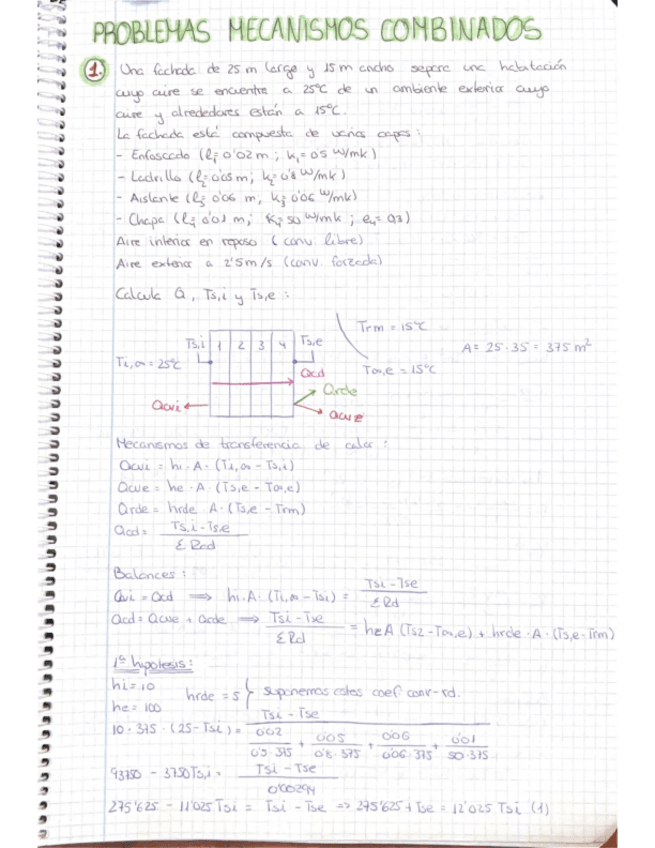 PROBLEMAS MECANISMOS COMBINADOS
1. Una fachada de 25 m largo y 15 m ancho separa una habitación
cuyo aire se encuentra a 25°C de un ambiente exterior cuyo
aire y alrededores están a 15°C.
La fachada está compuesta de varias capas:
- Enfoscado (l₁=0'02 m ; k₁=0'5 W/mk)
- Ladrillo (l₂=0'05 m; k₂=0'8 W/mk)
- Aislante (l₃=0'06 m, k₃=0'06 W/mk)
- Chapa (l₄=0'01 m; k₄=50 W/mk ; e₄=0,3)
Aire interior en reposo (conv libre)
Aire exterior a 2'5 m/s (conv. forzada)
Calcula Q, Ts,i y Ts,e :
Ti,∞ = 25°C
Ts,i
1 2 3 4
Ts,e
Trm = 15°C
T∞,e = 15°C
A = 25·35 = 375 m²
Qcd
Qrde
Qcvi
Qcve
Mecanismos de transferencia de calor :
Qcvi = hi · A · (Ti,∞ - Ts,i)
Qcve = he · A (Ts,e - T∞,e)
Qrde = hrde A · (Ts,e - Trm)
Qcd = Ts,i - Ts,e / Σ Rcd
Balances :
Qvi = Qcd ⟹ hi·A· (Ti,∞ - Tsi) = Tsi - Tse / Σ Rd
Qcd = Qcve + Qrde ⟹ Tsi - Tse / Σ Rd = he A (Ts2 - T∞,e) + hrde · A · (Ts,e - Trm)
1ª hipótesis:
hi = 10
he = 100
hrde = 5 } suponemos estos coef conv-rd.
10 · 375 · (25 - Tsi) = Tsi - Tse / 0'02/0'5·375 + 0'05/0'8·375 + 0'06/0'06·375 + 0'01/50·375
93750 - 3750 Ts,i = Tsi - Tse / 0'00294
275'625 - 11'025 Tsi = Tsi - Tse ⟹ 275'625 + Tse = 12'025 Tsi (1)